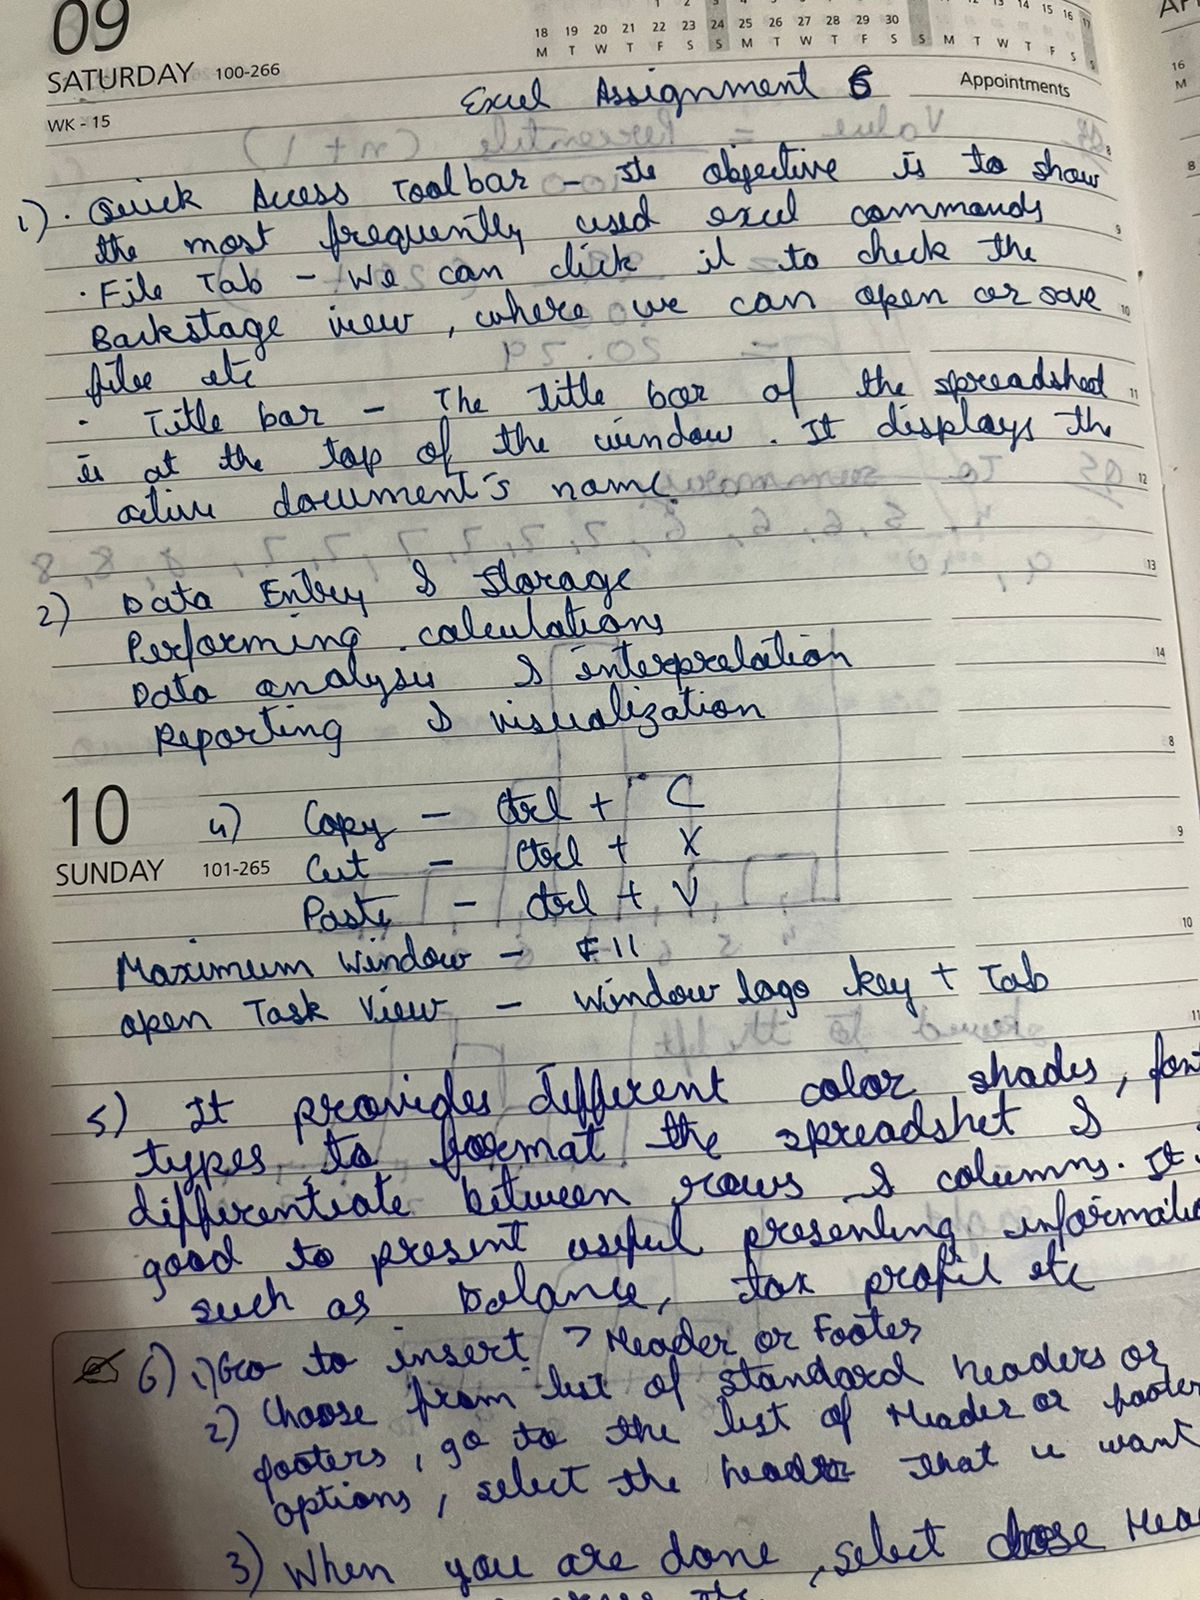 09
18 19 20 21 22 23 24 25 26 27 28 29 30
M T W T F S S M T W T F S S M T W T F S S
SATURDAY 100-266
WK - 15
Excel Assignment 6
Appointments
1) · Quick Access Toolbar - Its objective is to show
the most frequently used excel commands
· File Tab - We can click it to check the
Backstage view, where we can open or save
files etc
· Title bar - The title bar of the spreadsheet
is at the top of the window. It displays the
active document's name.
2) Data Entry & Storage
Performing calculations
Data analysis & interpretation
Reporting & visualization
10
SUNDAY 101-265
4) Copy - Ctrl + C
Cut - Ctrl + X
Paste - Ctrl + V
Maximum Window - F11
open Task View - Window logo key + Tab
5) It provides different color shades, font
types to format the spreadshet &
differentiate between rows & columns. It
good to present useful presenting
such as balance, tax profit etc
6) 1) Go to insert > Header or Footer
2) Choose from list of standard headers or
footers, go to the list of Header or footer
options, select the header that u want
3) When you are done, select close